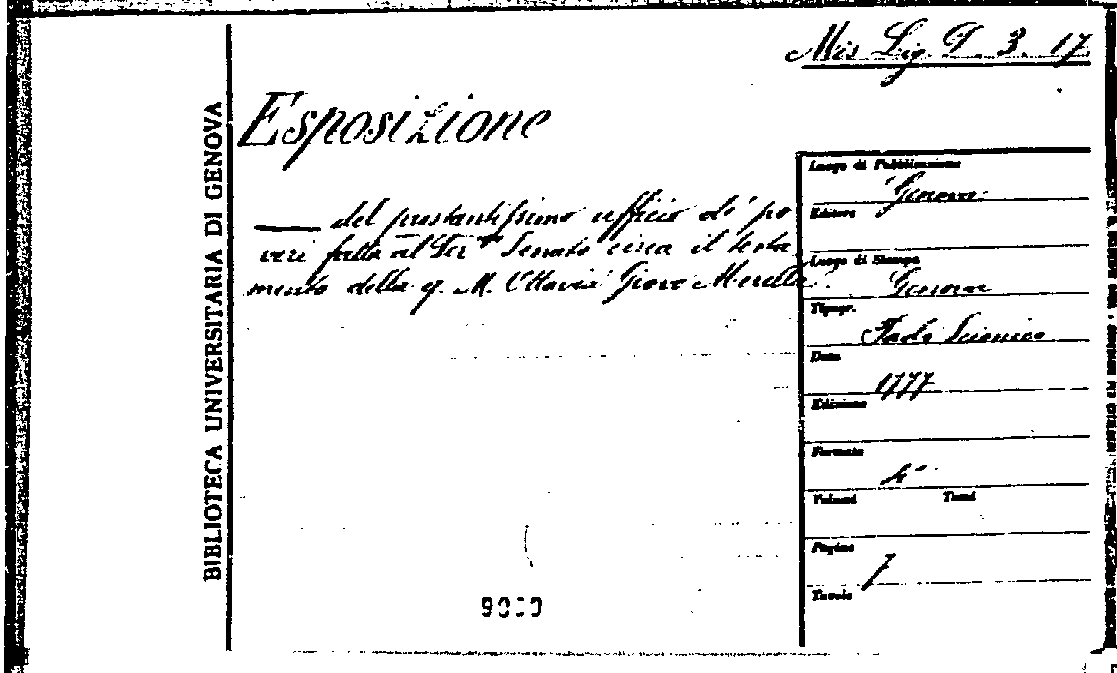 Mis Lig. T. 3. 17
BIBLIOTECA UNIVERSITARIA DI GENOVA
Esposizione
del prestantissimo ufficio de' po
veri fatta al Ser.mo Senato circa il testa
mento della q. M. Ottavia Giovo Merella.
Luogo di Pubblicazione
Genova
Editore
Luogo di Stampa
Genova
Tipogr.
Paolo Scionico
Data
1777
Edizione
Formato
4°
Volumi Tomi
Pagine
7
Tavole